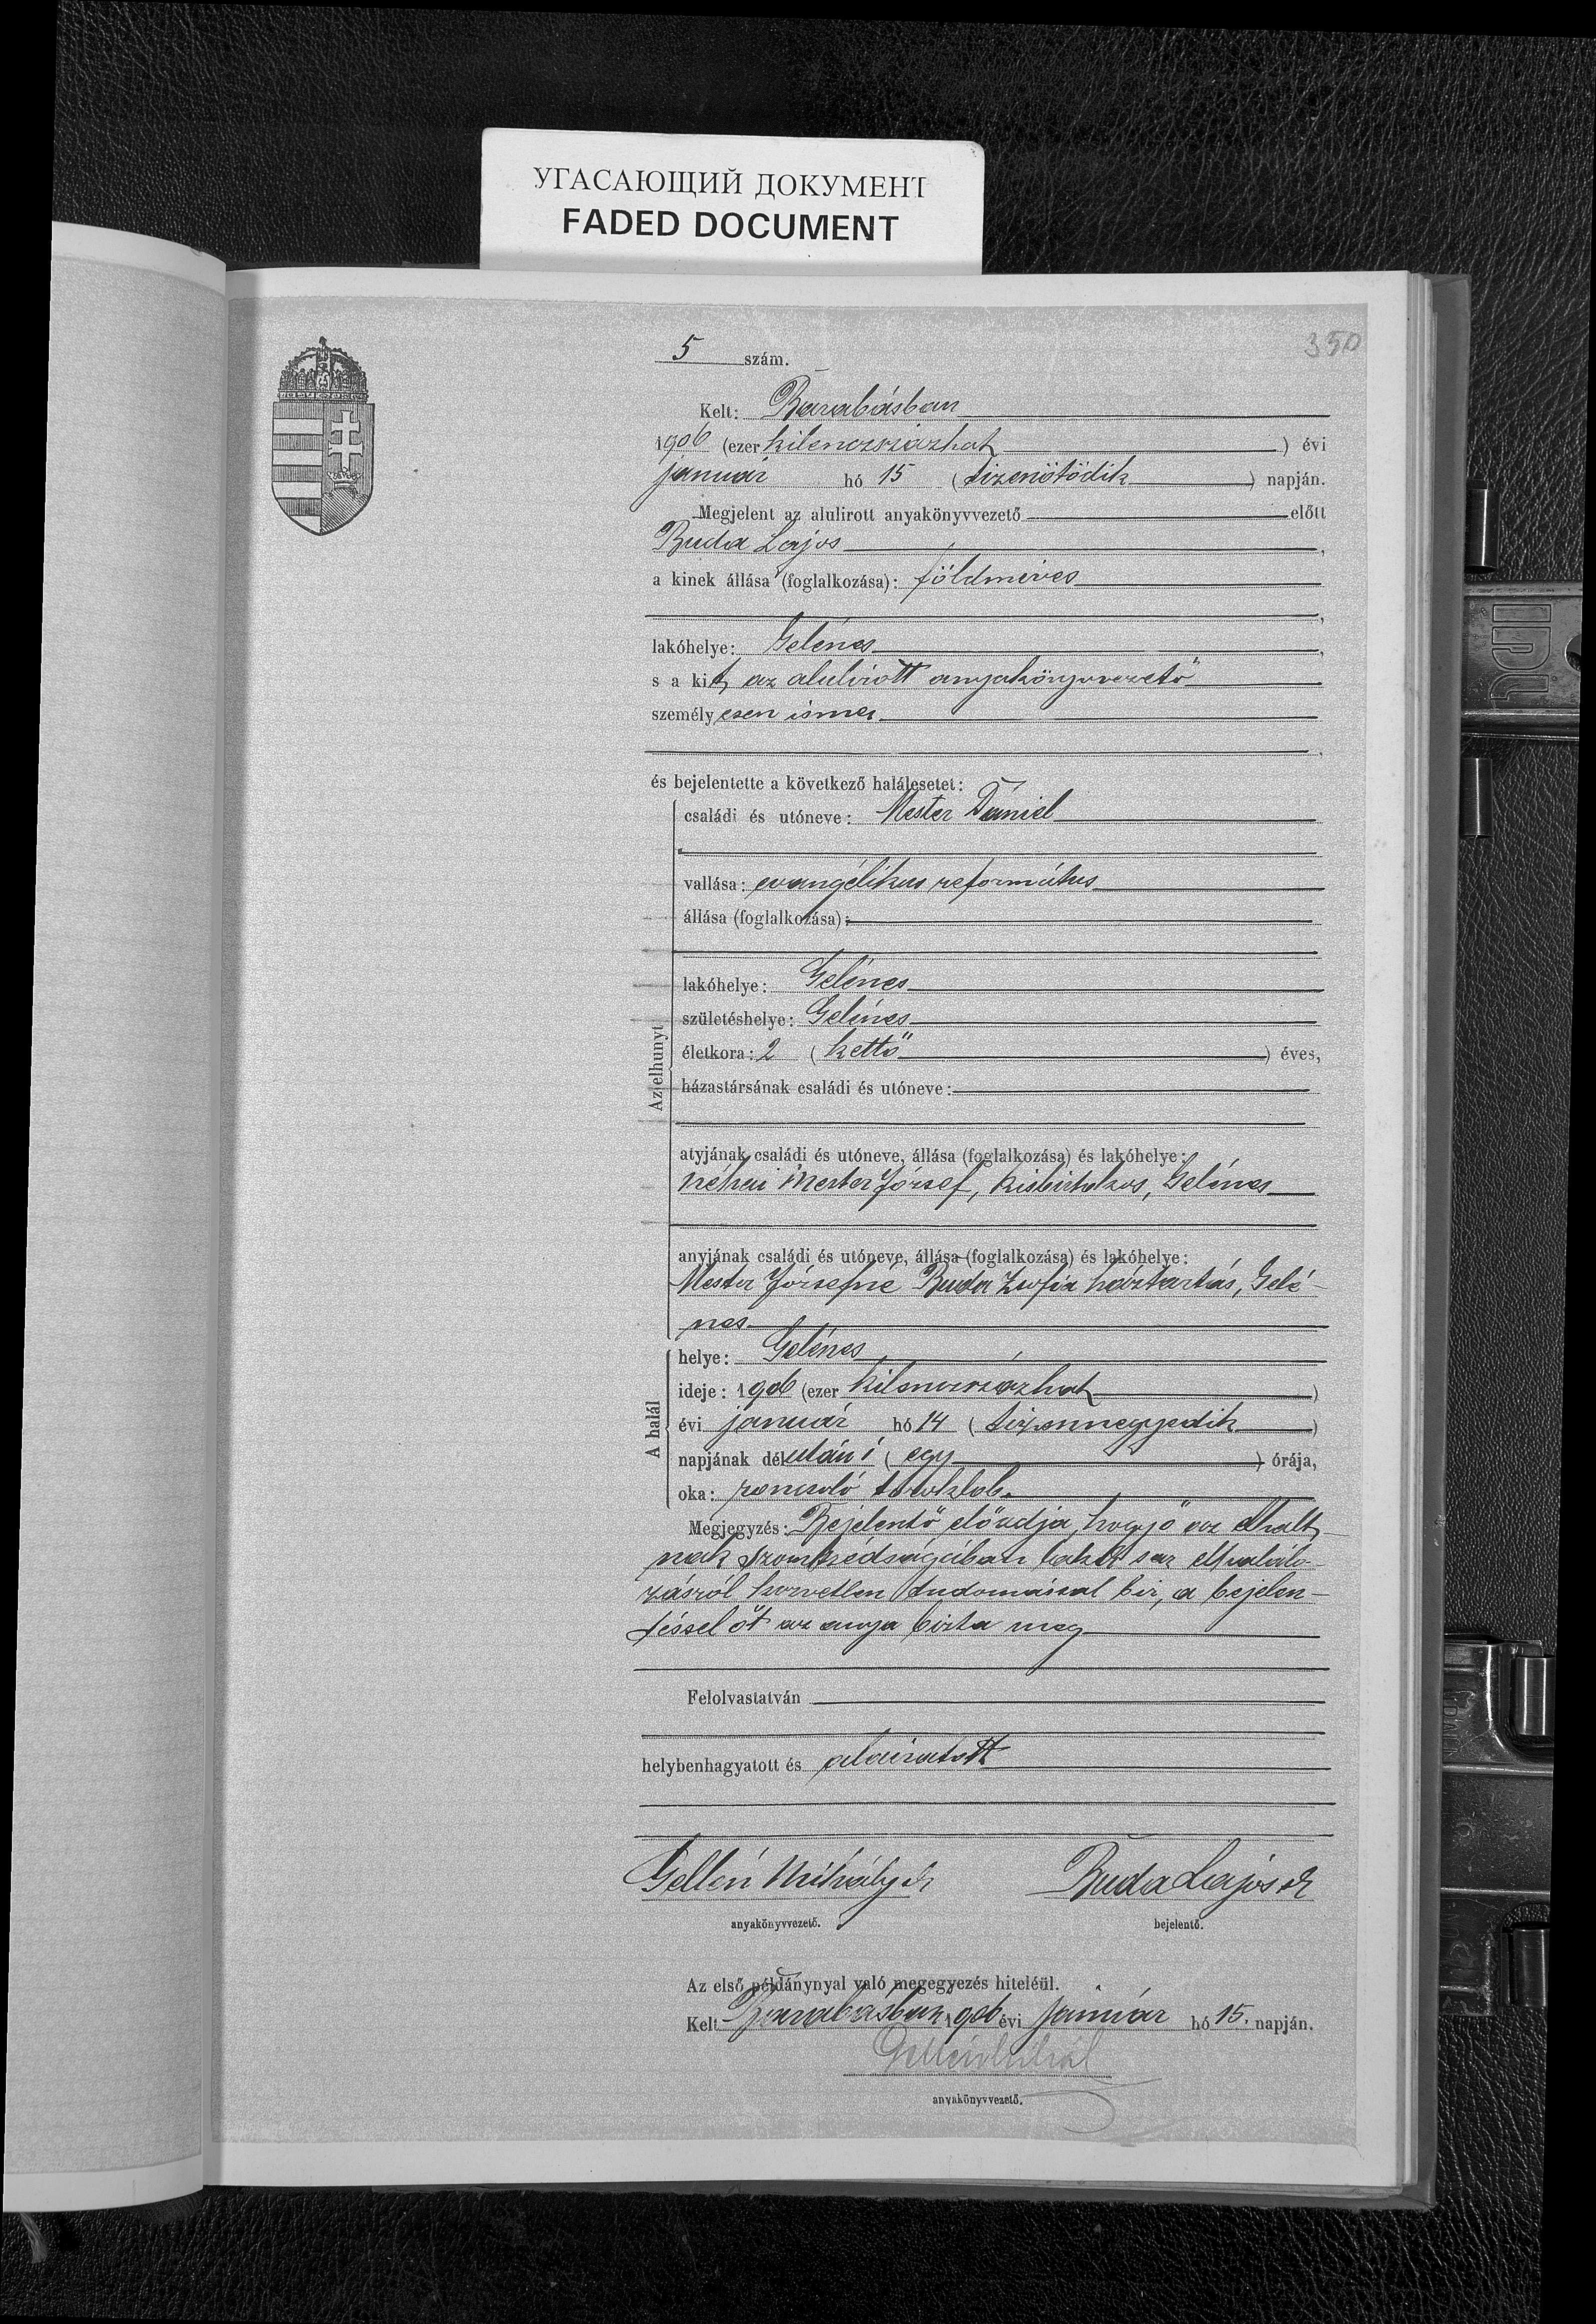 УГАСАЮЩИЙ ДОКУМЕНТ
FADED DOCUMENT
350
5 szám.
Kelt: Barabásban
1906 (ezer kilenczszázhat ) évi
január hó 15 ( tizenötödik ) napján.
Megjelent az alulirott anyakönyvvezető előtt
Buda Lajos ,
a kinek állása (foglalkozása): földmives
,
lakóhelye: Gelénes ,
s a kit az alulirott anyakönyvvezető
személy esen ismer
,
és bejelentette a következő halálesetet:
Az elhunyt
családi és utóneve: Mester Dániel
vallása: evangélikus református
állása (foglalkozása):
lakóhelye: Gelénes
születéshelye: Gelénes
életkora: 2 ( kettő ) éves,
házastársának családi és utóneve:
atyjának családi és utóneve, állása (foglalkozása) és lakóhelye:
néhai Mester József, kisbirtokos, Gelénes
anyjának családi és utóneve, állása (foglalkozása) és lakóhelye:
Mester Józsefné Buda Zsófia háztartás, Gelé-
nes
A halál
helye: Gelénes
ideje: 1906 (ezer kilenczszázhat )
évi január hó 14 ( tizennegyedik )
napjának délutáni ( egy ) órája,
oka: roncsoló toroklob.
Megjegyzés: Bejelentő előadja, hogy ő az elhalt-
nak szomszédságában lakik s az elhalálo-
zásról közvetlen tudomással bir, a bejelen-
téssel őt az anya bizta meg
Felolvastatván
helybenhagyatott és aláiratott
Gellén Mihály sk Buda Lajos sk
anyakönyvvezető. bejelentő.
Az első példánynyal való megegyezés hiteléül.
Kelt Barabásban 1906 évi január hó 15. napján.
Gellén Mihál
anyakönyvvezető.